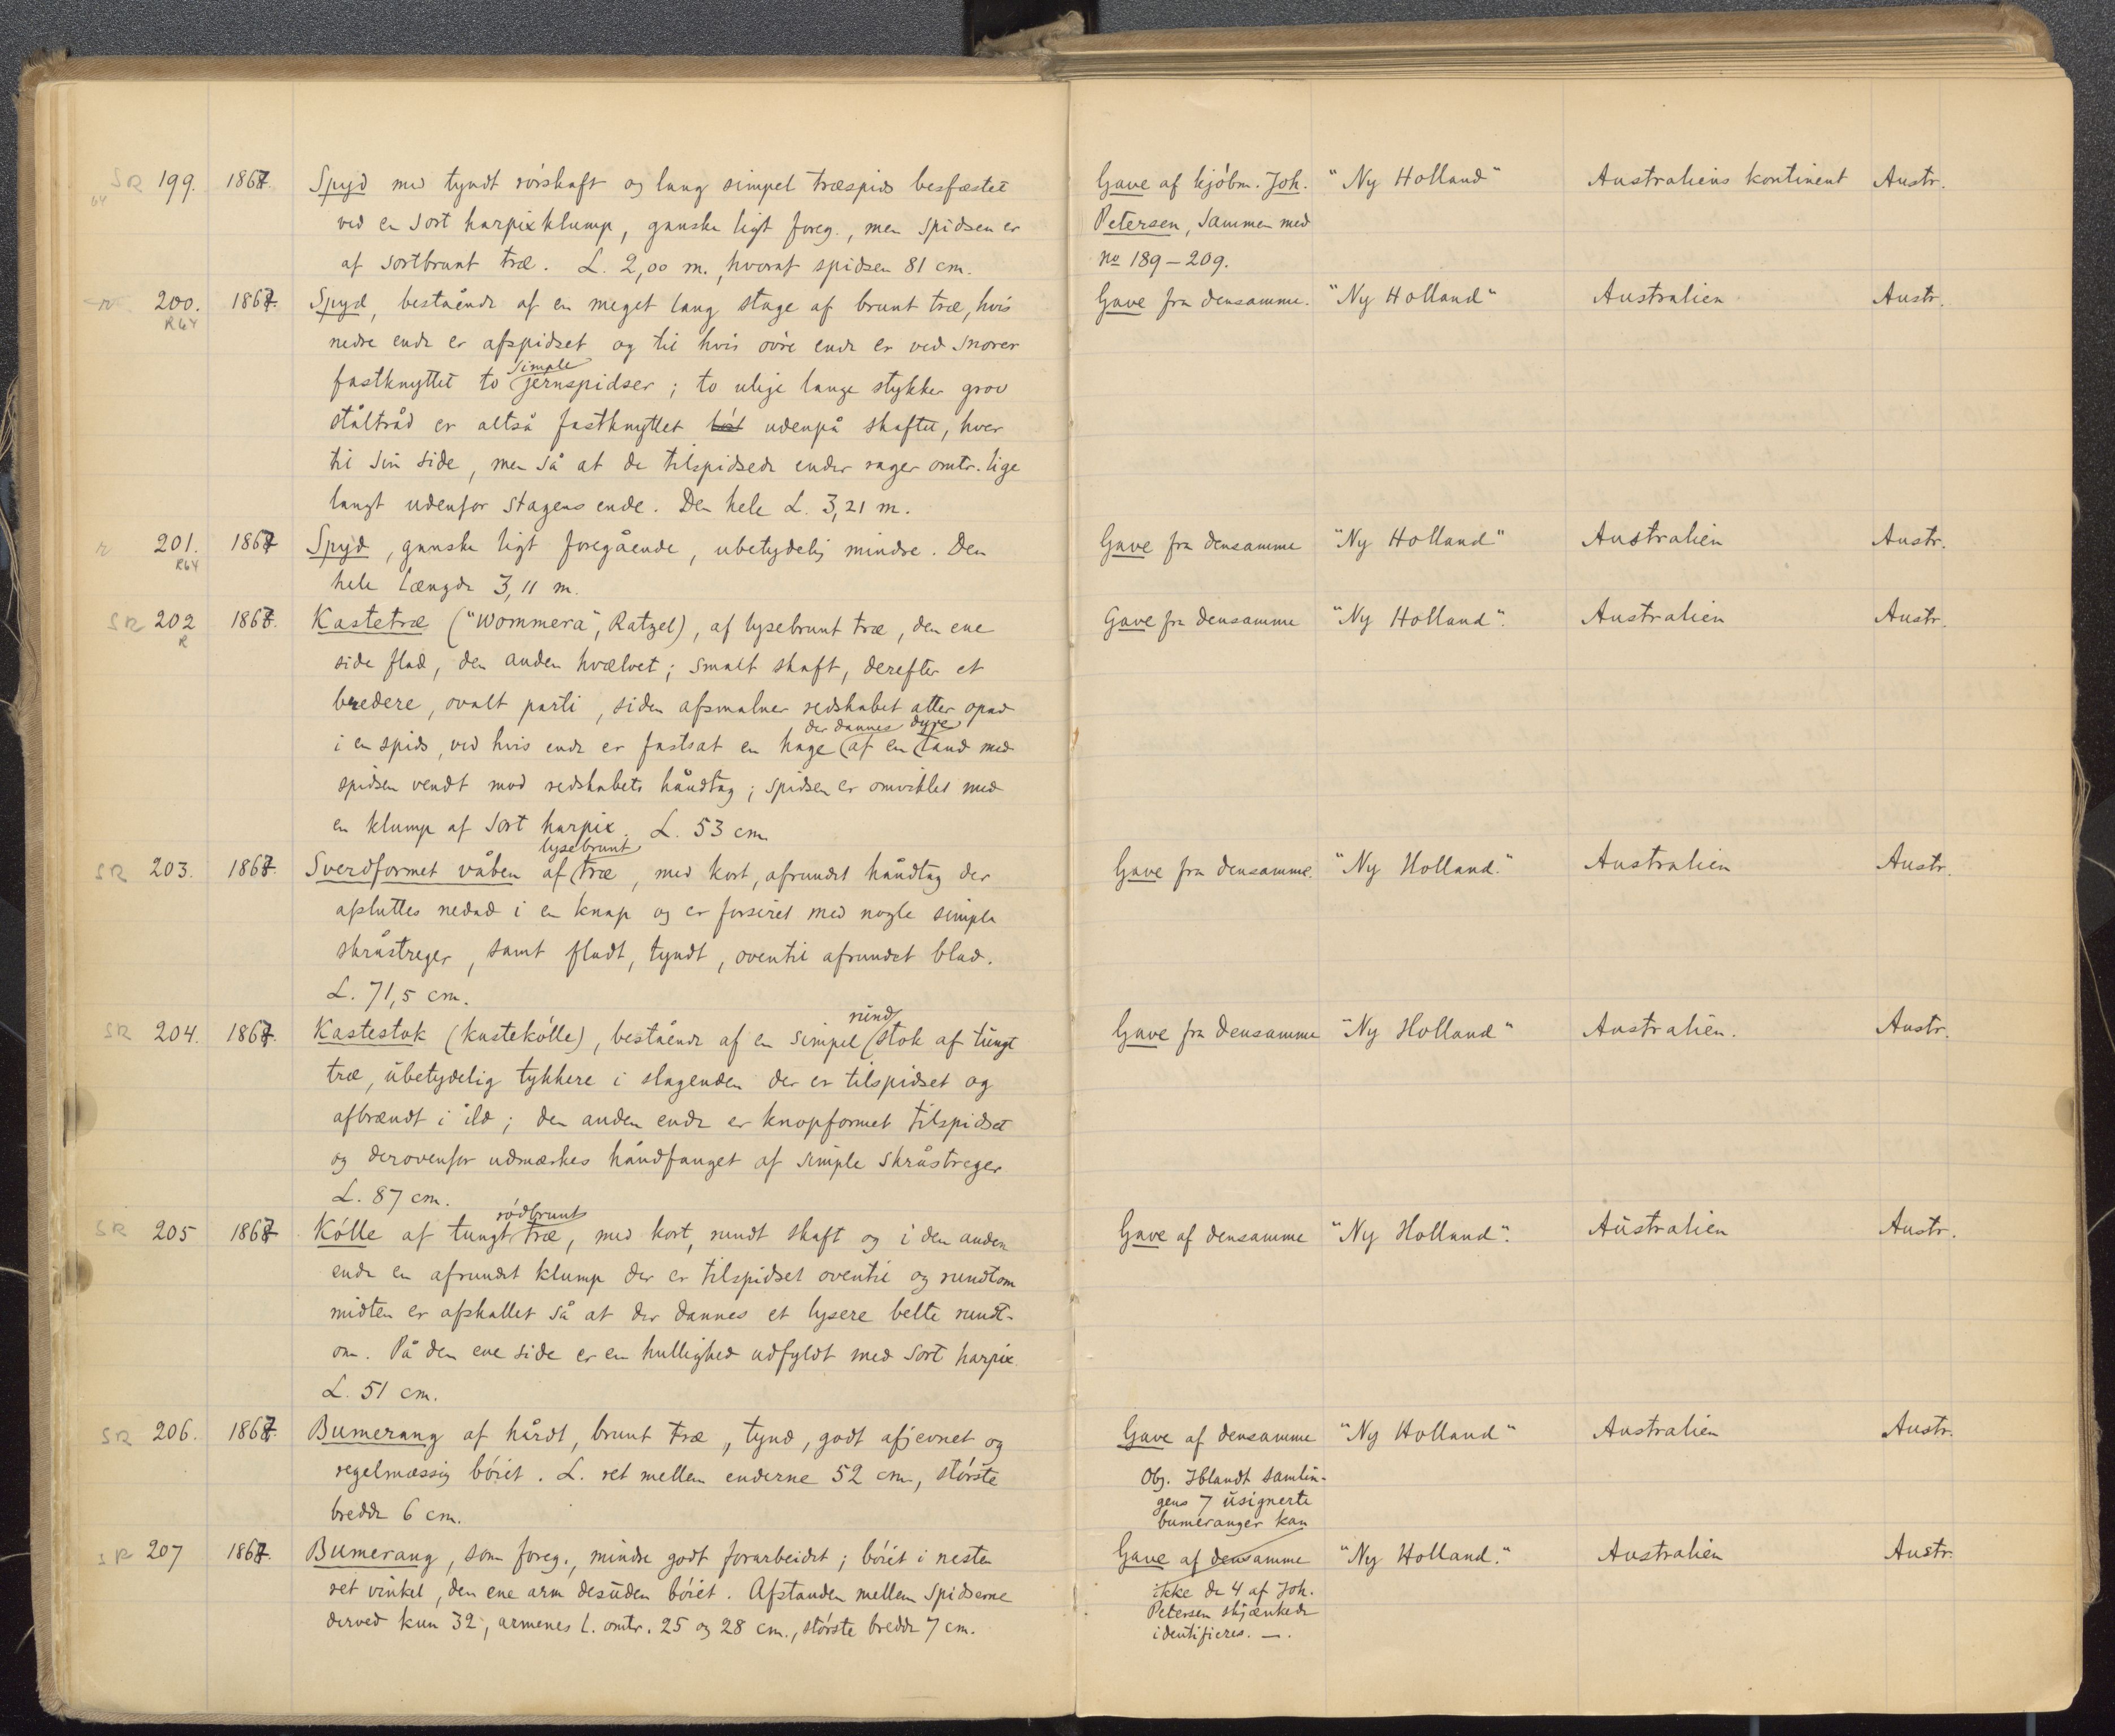 SR 199. 1867. Spyd med tyndt rörskaft og lang simpel træspids besfæstet Gave af kjöbm. Joh. "Ny Holland" Australiens kontinent Austr.
64 ved en sort harpixklump, ganske ligt foreg., men spidsen er Petersen, sammen med
af sortbrunt træ. L. 2,00 m., hvoraf spidsen 81 cm. no 189–209.
200. 1867. Spyd, bestående af en meget lang stage af brunt træ, hvis Gave fra densamme. "Ny Holland" Australien Austr.
R64 nedre ende er afspidset og til hvis övre ende er ved snorer
simple
fastknyttet to jernspidser; to ulige lange stykker grov
ståltråd er altså fastknyttet udenpå skaftet, hver
til sin side, men så at de tilspidsede ender rager omtr. lige
langt udenfor stagens ende. Den hele L. 3,21 m.
r 201. 1867 Spyd, ganske ligt foregående, ubetydelig mindre. Den Gave fra densamme "Ny Holland" Australien Austr.
R64 hele længde 3,11 m.
SR 202 1867. Kastetræ ("Wommera", Ratzel), af lysebrunt træ, den ene Gave fra densamme "Ny Holland". Australien Austr.
R side flad, den anden hvælvet; smalt skaft, derefter et
bredere, ovalt parti, siden afsmalner redskabet atter opad
der dannes dyre
i en spids, ved hvis ende er fastsat en hage af en tand med
spidsen vendt mod redskabets håndtag; spidsen er omviklet med
en klump af sort harpix. L. 53 cm
lysebrunt
SR 203. 1867. Sverdformet våben af træ, med kort, afrundet håndtag der Gave fra densamme. "Ny Holland." Australien Austr.
afsluttes nedad i en knap og er forsiret med nogle simple
skråstreger, samt fladt, tyndt, oventil afrundet blad.
L. 71,5 cm.
rund
SR 204. 1867. Kastestok (kastekölle), bestående af en simpel stok af tungt Gave fra densamme "Ny Holland" Australien. Austr.
træ, ubetydelig tykkere i slagenden der er tilspidset og
afbrændt i ild; den anden ende er knopformet tilspidset
og derovenfor udmærkes håndfanget af simple skråstreger
L. 87 cm.
rödbrunt
SR 205 1867 Kölle af tungt træ, med kort, rundt skaft og i den anden Gave af densamme "Ny Holland". Australien Austr.
ende en afrundet klump der er tilspidset oventil og rundtom
midten er afskallet så at der dannes et lysere belte rundt-
om. På den ene side er en hullighed udfyldt med sort harpix.
L. 51 cm.
SR 206. 1867. Bumerang af hårdt, brunt træ, tynd, godt afjevnet og Gave af densamme "Ny Holland" Australien Austr.
regelmæssig böiet. L. ret mellem enderne 52 cm, störste Obs. Iblandt samlin-
gens 7 usignerte
bredde 6 cm. bumeranger kan
SR 207 1867. Bumerang, som foreg., mindre godt forarbeidet; böiet i nesten Gave af densamme "Ny Holland." Australien Austr.
ret vinkel, den ene arm desuden böiet. Afstanden mellem spidserne ikke de 4 af Joh.
Petersen skjænkede
derved kun 32, armenes l. omtr. 25 og 28 cm., störste bredde 7 cm. identifieres. —.